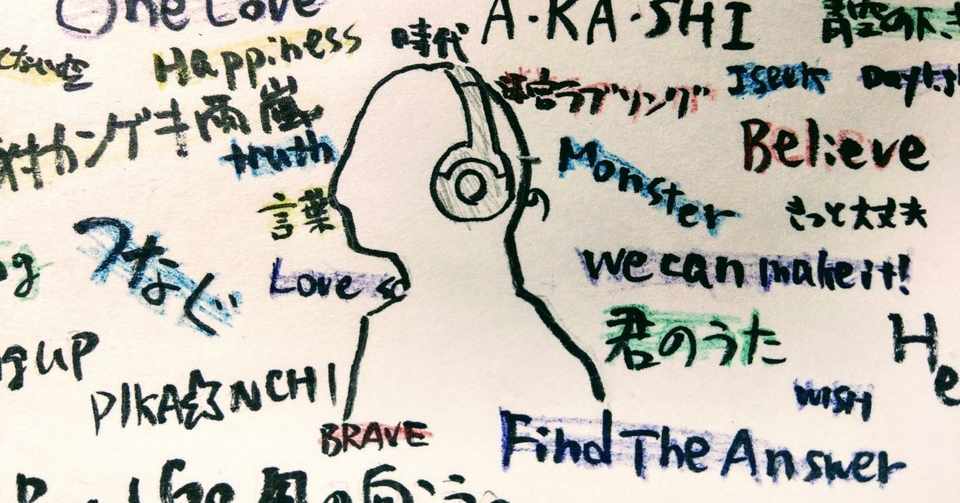 One Love
A・KA・SHI
青空の下
Happiness
時代
てない空
迷宮ラブソング
I seek
カンゲキ雨嵐
truth
Believe
Monster
言葉
の
きっと大丈夫
つなぐ
Love
we can make it!
君のうた
He
up
PIKA☆NCHI
wISH
BRAVE
Find The Answer